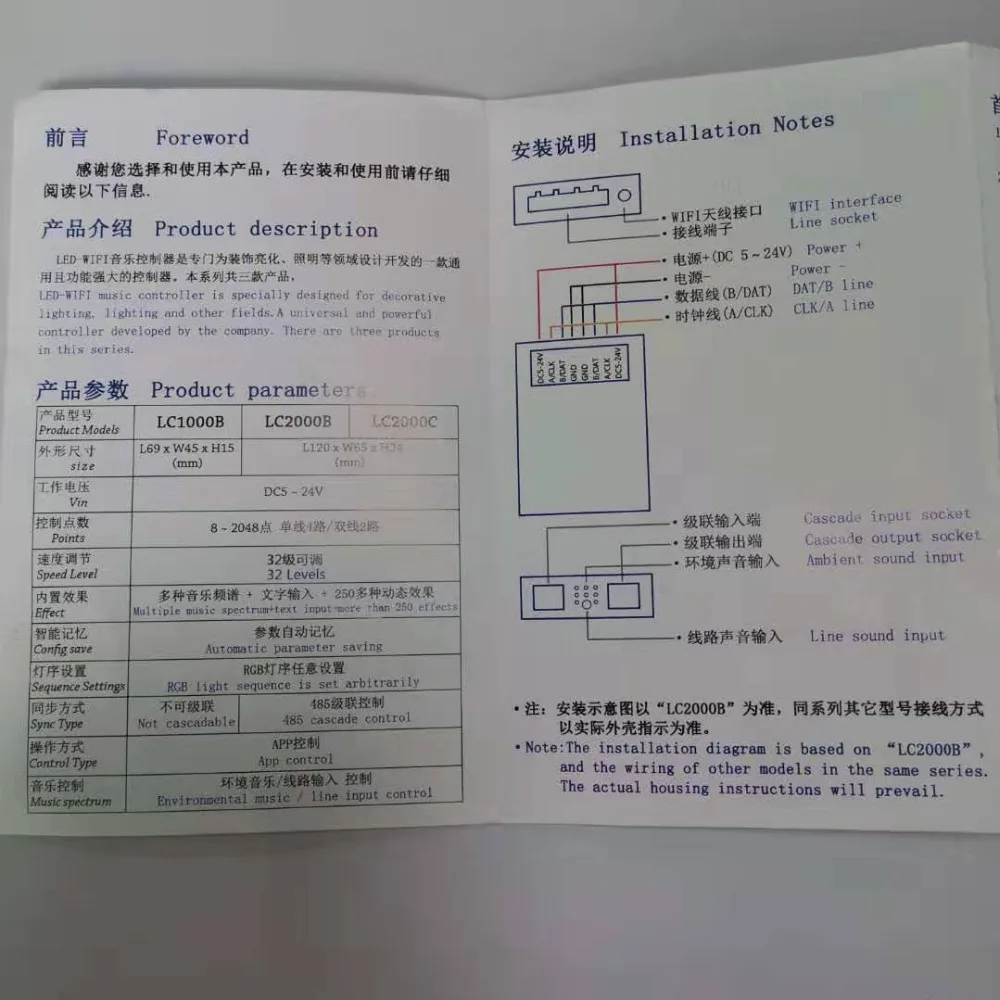 前言 Foreword
感谢您选择和使用本产品，在安装和使用前请仔细
阅读以下信息.
产品介绍 Product description
LED-WIFI音乐控制器是专门为装饰亮化、照明等领域设计开发的一款通
用且功能强大的控制器。本系列共三款产品，
LED-WIFI music controller is specially designed for decorative
lighting, lighting and other fields.A universal and powerful
controller developed by the company. There are three products
in this series.
产品参数 Product parameters
产品型号 LC1000B LC2000B LC2000C
Product Models
外形尺寸 L69 x W45 x H15 L120 x W65 x H24
size (mm) (mm)
工作电压 DC5 ~ 24V
Vin
控制点数 8 ~ 2048点 单线4路/双线2路
Points
速度调节 32级可调
Speed Level 32 Levels
内置效果 多种音乐频谱 + 文字输入 + 250多种动态效果
Effect Multiple music spectrum+text input+more than 250 effects
智能记忆 参数自动记忆
Config save Automatic parameter saving
灯序设置 RGB灯序任意设置
Sequence Settings RGB light sequence is set arbitrarily
同步方式 不可级联 485级联控制
Sync Type Not cascadable 485 cascade control
操作方式 APP控制
Control Type App control
音乐控制 环境音乐/线路输入 控制
Music spectrum Environmental music / line input control
安装说明 Installation Notes
• WIFI天线接口 WIFI interface
• 接线端子 Line socket
• 电源+(DC 5～24V) Power +
• 电源- Power -
• 数据线(B/DAT) DAT/B line
• 时钟线(A/CLK) CLK/A line
DC5-24V
A/CLK
B/DAT
GND
GND
B/DAT
A/CLK
DC5-24V
• 级联输入端 Cascade input socket
• 级联输出端 Cascade output socket
• 环境声音输入 Ambient sound input
• 线路声音输入 Line sound input
• 注：安装示意图以“LC2000B”为准，同系列其它型号接线方式
以实际外壳指示为准。
• Note:The installation diagram is based on “LC2000B”,
and the wiring of other models in the same series.
The actual housing instructions will prevail.